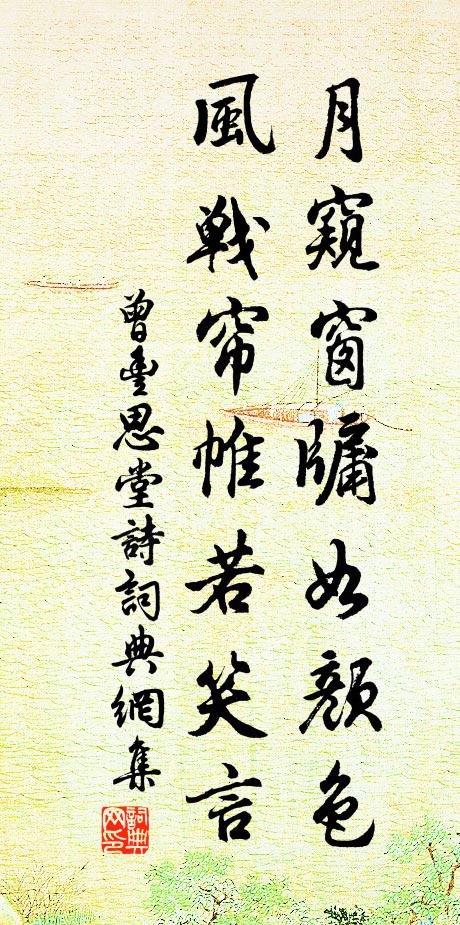 月窺窗牖如顏色
風戰帘帷若笑言
曾豐思堂詩詞典網集
詞典网印